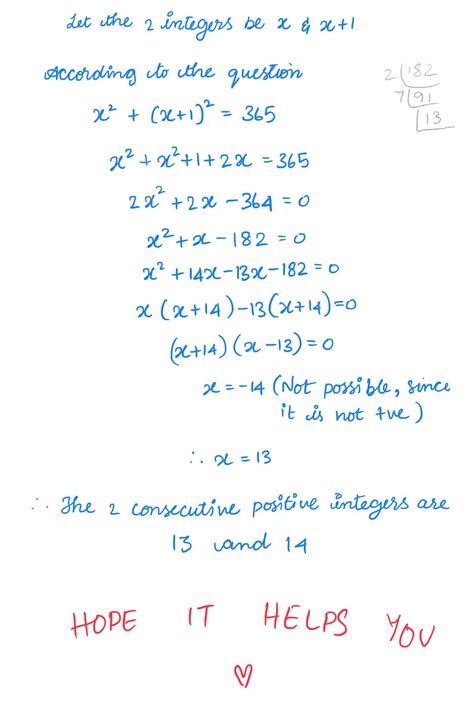 Let the 2 integers be x & x+1
According to the question
2 182
7 91
13
x² + (x+1)² = 365
x² + x² + 1 + 2x = 365
2x² + 2x - 364 = 0
x² + x - 182 = 0
x² + 14x - 13x - 182 = 0
x (x+14) -13(x+14)=0
(x+14) (x-13) = 0
x = -14 (Not possible, since
it is not +ve)
∴ x = 13
∴ The 2 consecutive positive integers are
13 and 14
HOPE IT HELPS YOU